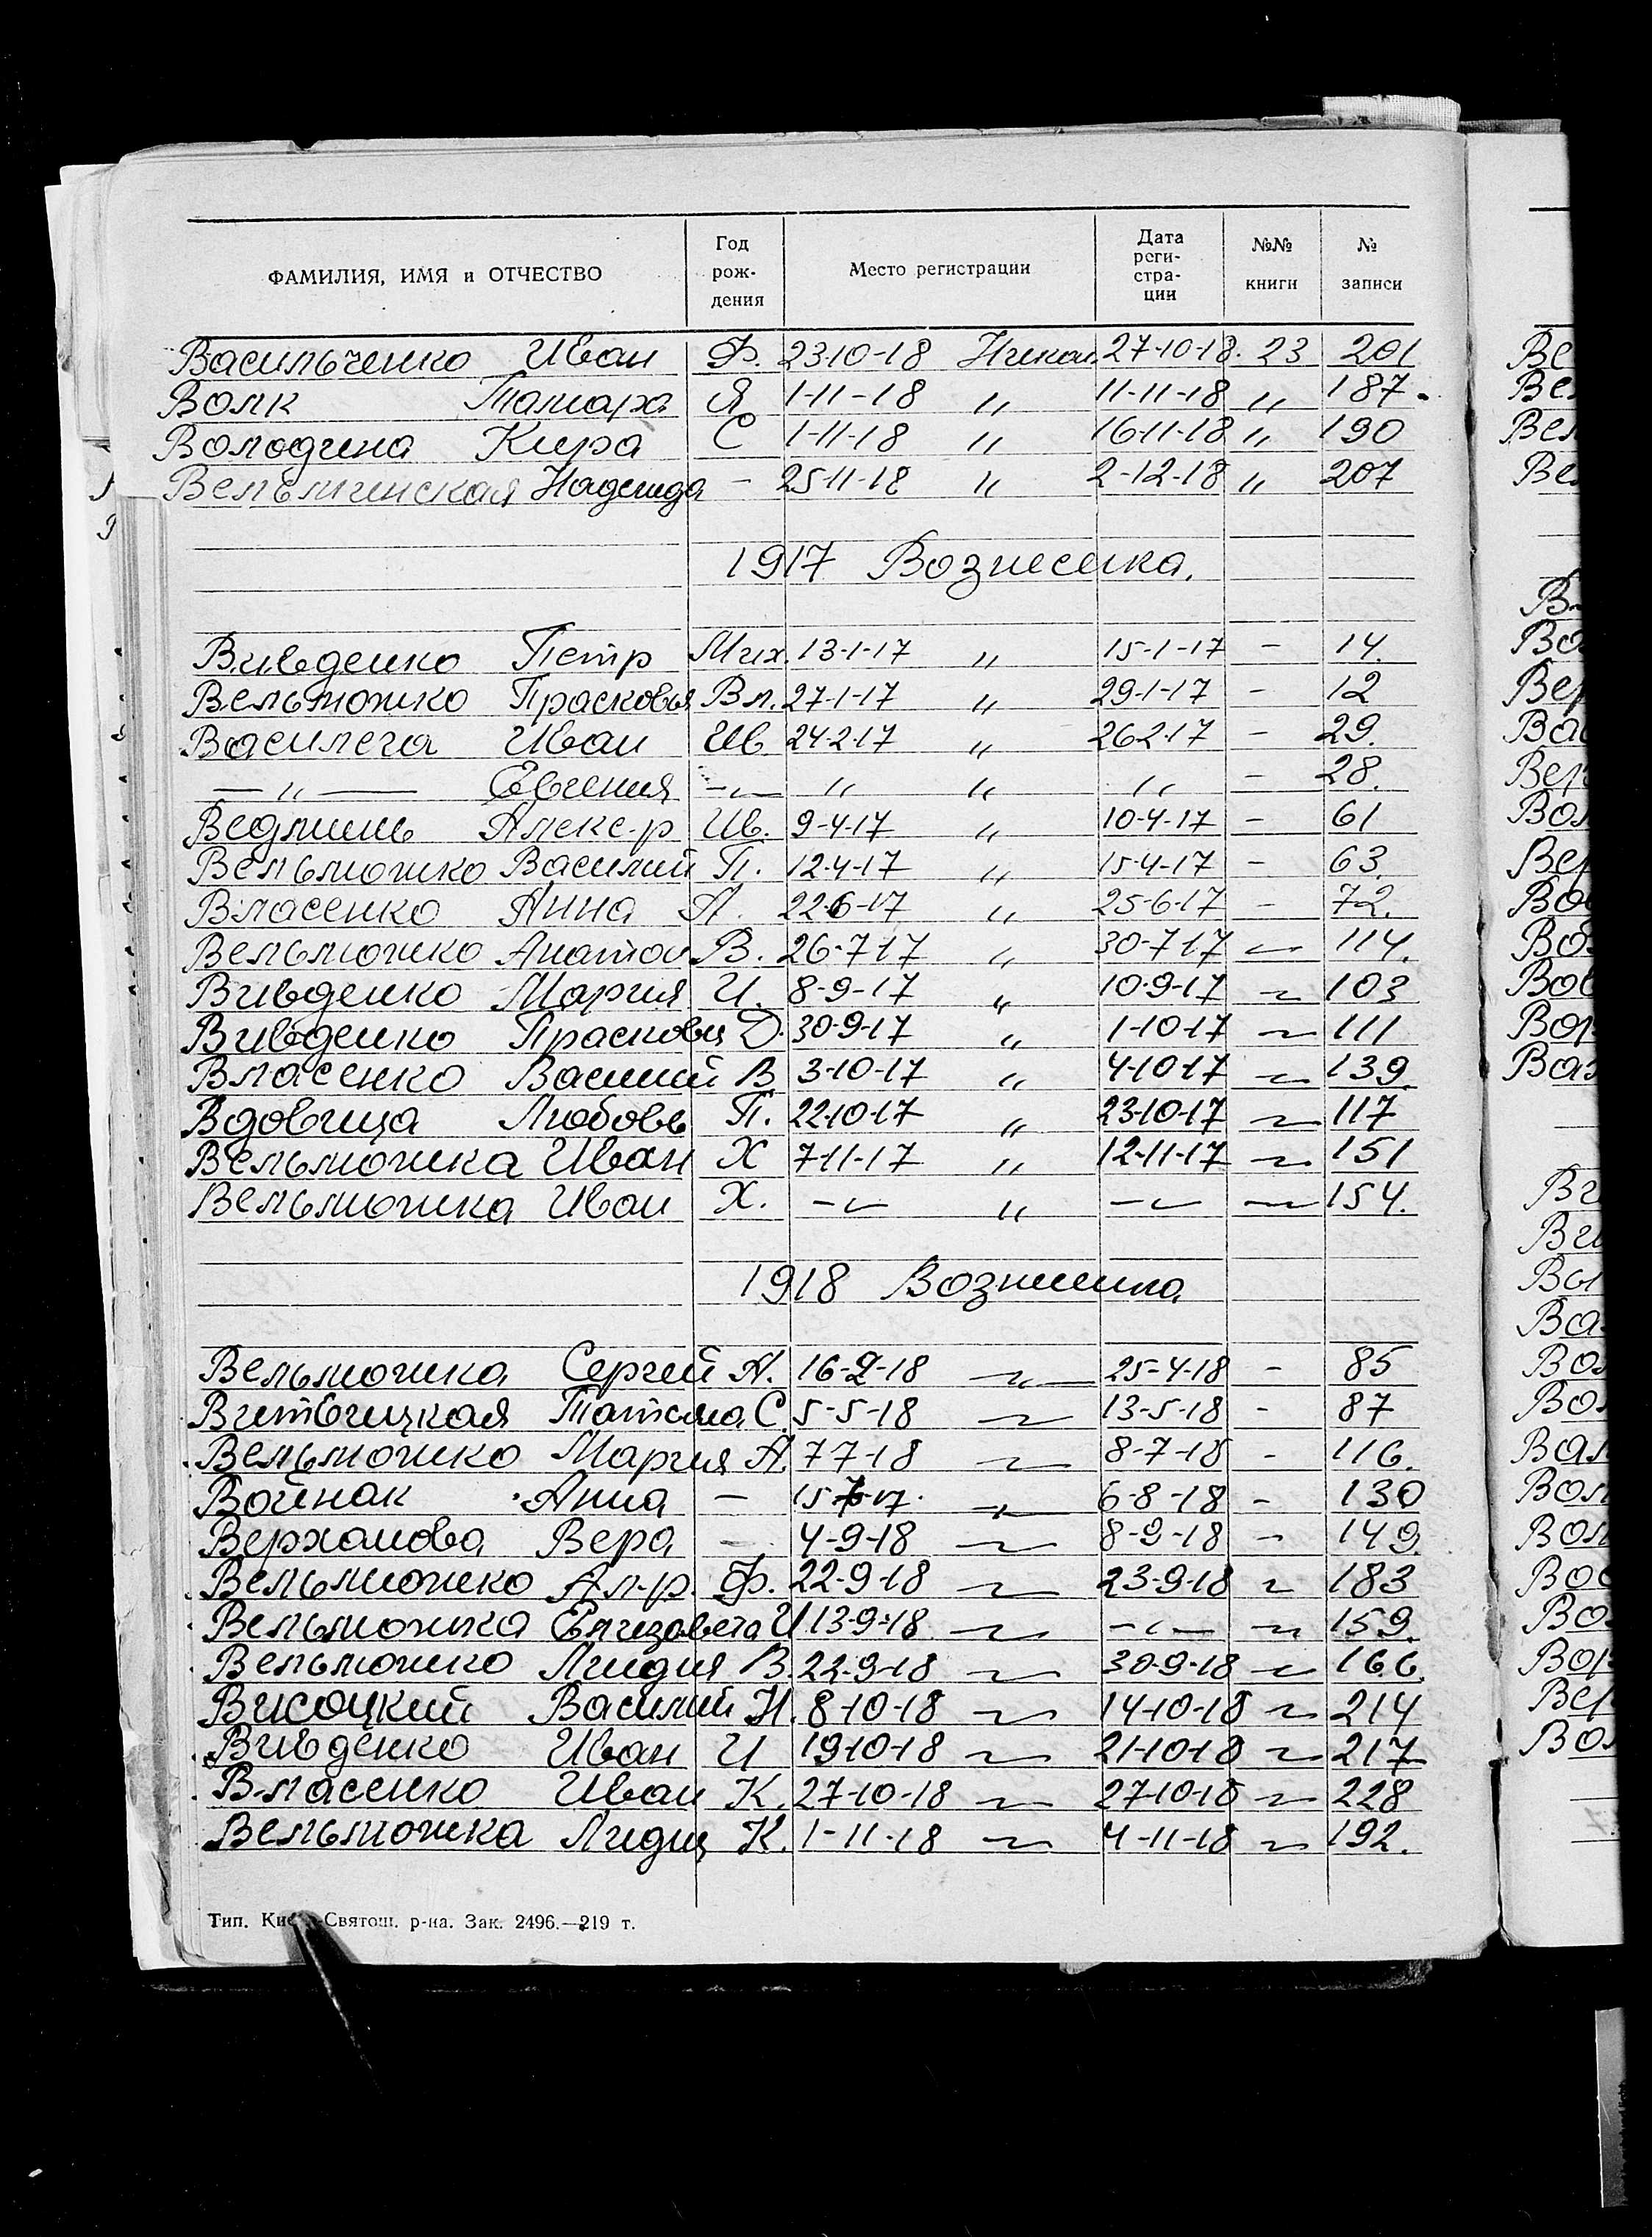 ФАМИЛИЯ, ИМЯ и ОТЧЕСТВО Год рож- дения Место регистрации Дата реги- стра- ции №№ книги № записи
Васильченко Иван Ф. 23-10-18 Никол. 27-10-18. 23 201
Волк Тамара Я 1-11-18 " 11-11-18 " 187.
Володина Кира С 1-11-18 " 16-11-18 " 190
Вельминская Надежда - 25-11-18 " 2-12-18 " 207
1917 Вознесенка.
Вивденко Петр Мих. 13-1-17 " 15-1-17 - 14.
Вельможко Прасковья Вл. 27-1-17 " 29-1-17 - 12
Василега Иван Ив. 24-2-17 " 26-2-17 - 29.
— " — Евгения —"— " " " - 28.
Ведминь Алекс-р Ив. 9-4-17 " 10-4-17 - 61
Вельможко Василий П. 12-4-17 " 15-4-17 - 63.
Власенко Анна А. 22-6-17 " 25-6-17 - 72.
Вельможко Анатол В. 26-7-17 " 30-7-17 — 114.
Вивденко Мария И. 8-9-17 " 10-9-17 —"— 103
Вивденко Прасковия Д. 30-9-17 " 1-10-17 —"— 111
Власенко Василий В 3-10-17 " 4-10-17 —"— 139.
Вдовица Любовь П. 22-10-17 " 23-10-17 —"— 117
Вельможка Иван Х 7-11-17 " 12-11-17 —"— 151
Вельможка Иван Х. —"— " —"— —"— 154.
1918 Вознесенка
Вельможка Сергей А. 16-2-18 —"— 25-4-18 - 85
Витвицкая Татьяна С. 5-5-18 —"— 13-5-18 - 87
Вельможко Мария А. 7-7-18 —"— 8-7-18 - 116.
Войнак Анна — 15-7-17. —"— 6-8-18 - 130
Верханова Вера — 4-9-18 —"— 8-9-18 - 149
Вельможко Ал-р. Ф. 22-9-18 —"— 23-9-18 —"— 183
Вельможка Елизавета И 13-9-18 —"— —"— —"— 159.
Вельможко Лидия В. 22-9-18 —"— 30-9-18 —"— 166.
Висоцкий Василий Н. 8-10-18 —"— 14-10-18 —"— 214
Вивденко Иван И 19-10-18 —"— 21-10-18 —"— 217
Власенко Иван К. 27-10-18 —"— 27-10-18 —"— 228
Вельможка Лидия К. 1-11-18 —"— 4-11-18 —"— 192.
Тип. Святош. р-на. Зак. 2496.—219 т.